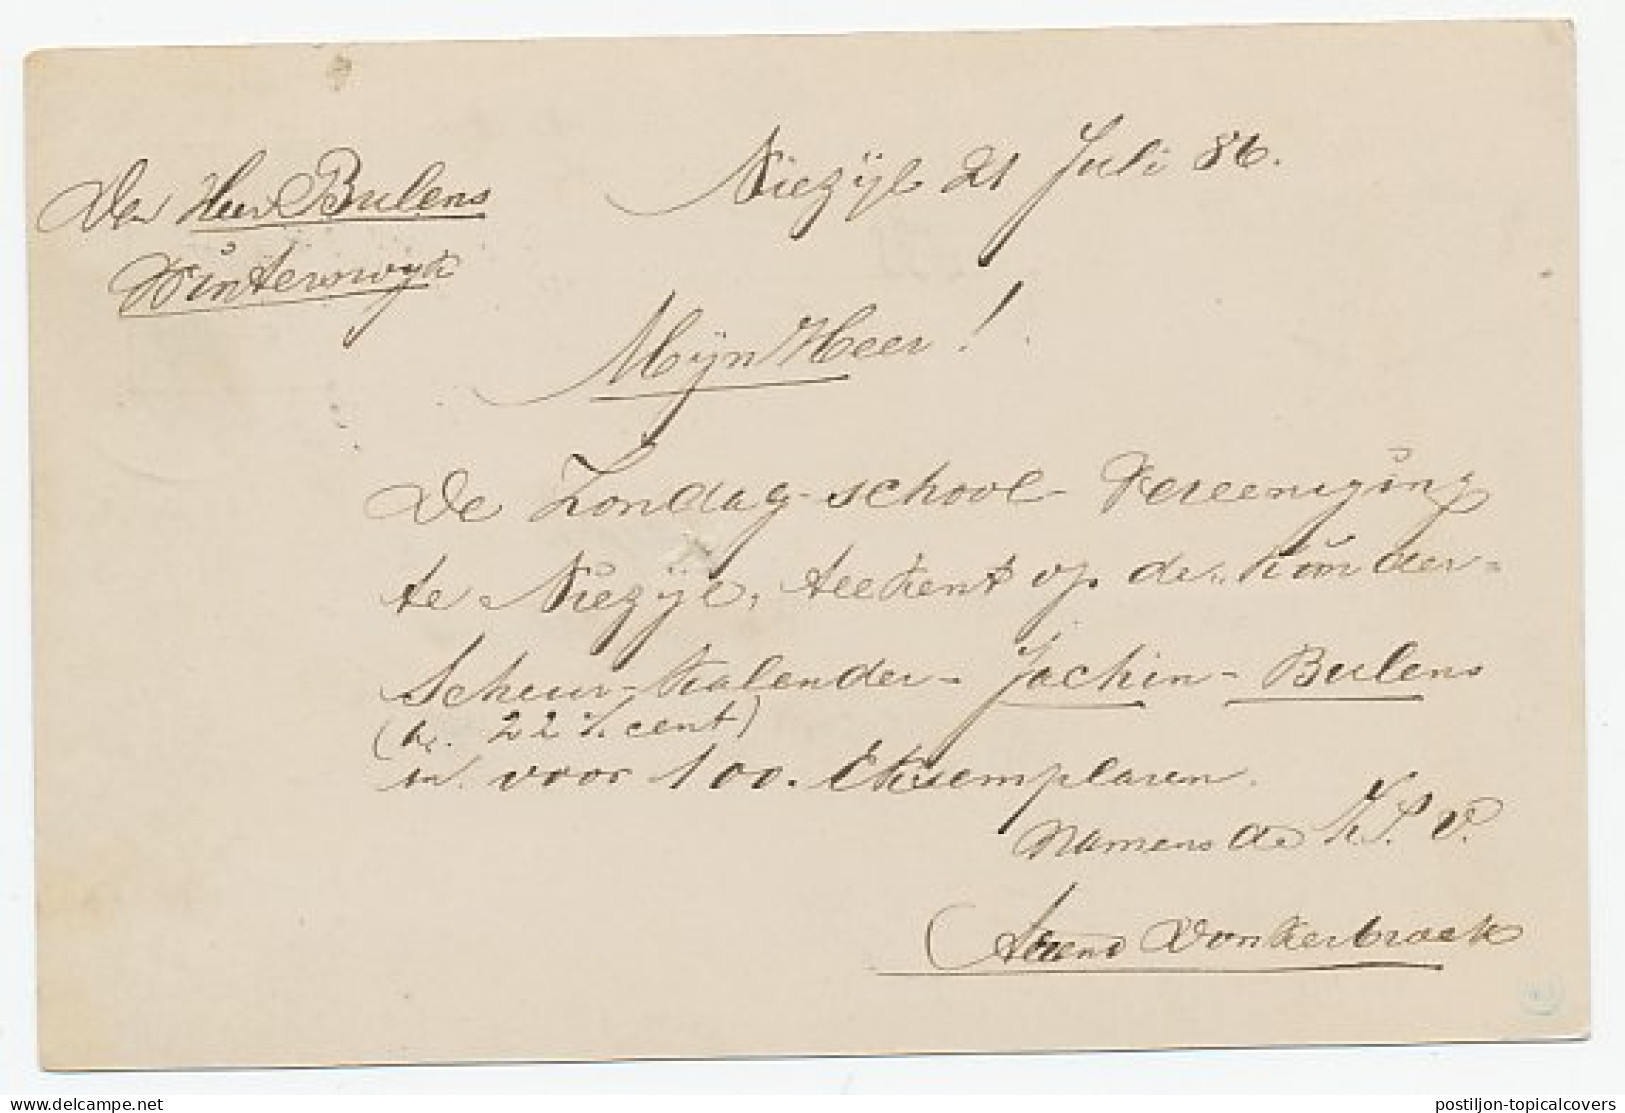 Den Heer Bulens
Winterswijk
Niezijl 21 Juli 86.
Mijn Heer!
De Zondag-school Vereeniging
te Niezijl, teekent op de "Kinder=
Scheur-Kalender- Jachin - Bulens
(à. 22½ cent)
in voor 100. Eksemplaren.
Namens de Z.S.V.
Arend Donkerbroek
delcampe.net
postiljon-topicalcovers